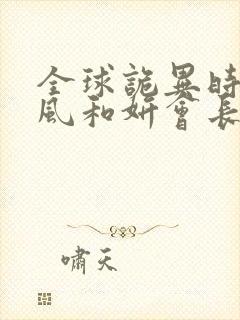 全球詭異時
風和妍會長
嘯天